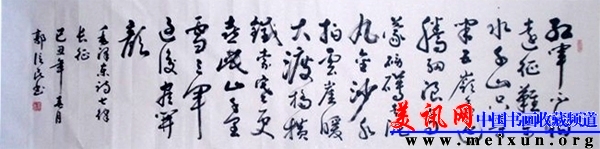 红軍不怕
遠征難万
水千山只等
闲五嶺逶迤
腾细浪乌
蒙磅礴走泥
丸金沙水
拍雲崖暖
大渡橋横
鐵索寒更
喜岷山千里
雪三軍
过後尽開
颜
毛泽东诗七律
长征
己丑年春月
郭民书
美讯网
中国书画收藏频道
www.meixun.org